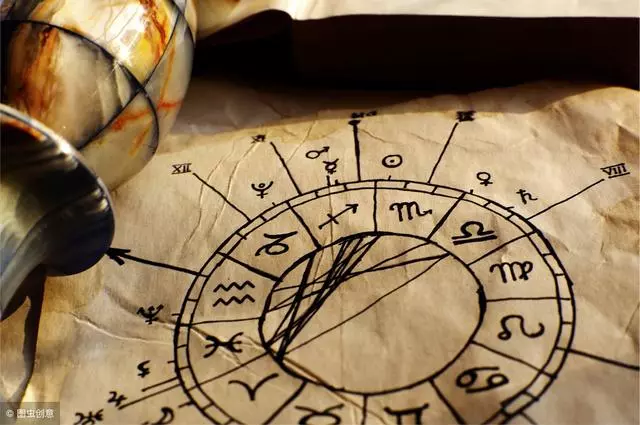 XII
VIII
♂
☉
♀
♄
♇
♐
♏
♎
♑
♍
♒
♌
♓
♋
♈
© 图虫创意